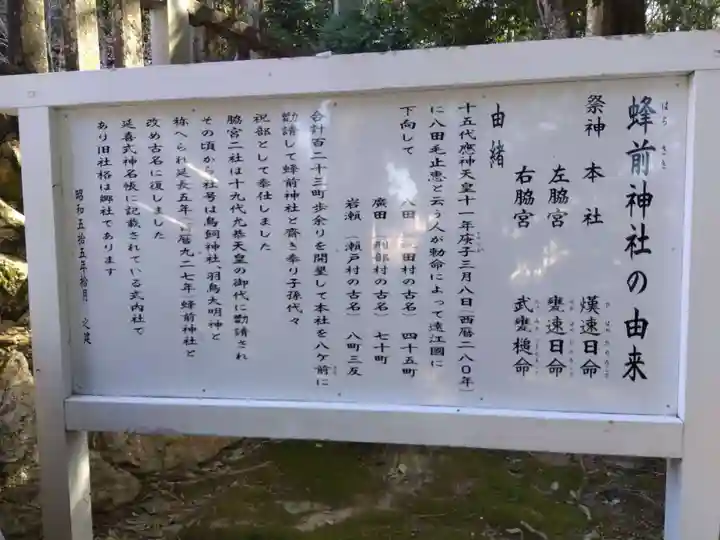 蜂前神社の由来
はち さき
祭神 本社 熯速日命
左脇宮 甕速日命
右脇宮 武甕槌命
由緒
十五代應神天皇十一年庚子三月八日(西暦二八〇年)
に八田毛止恵と云う人が勅命によって遠江國に
下向して 八田(田村の古名) 四十五町
廣田(刑部村の古名) 七十町
岩瀬(瀬戸村の古名) 八町三反
合計百二十三町歩余りを開墾して本社を八ケ前に
勧請して蜂前神社と齋き奉り子孫代々
祝部として奉仕しました
脇宮二社は十九代允恭天皇の御代に勧請され
その頃から社号は鳥飼神社、羽鳥大明神と
称へられ延長五年(西暦九二七年)蜂前神社と
改め古名に復しました
延喜式神名帳に記載されている式内社で
あり旧社格は郷社であります
昭和五拾五年拾月